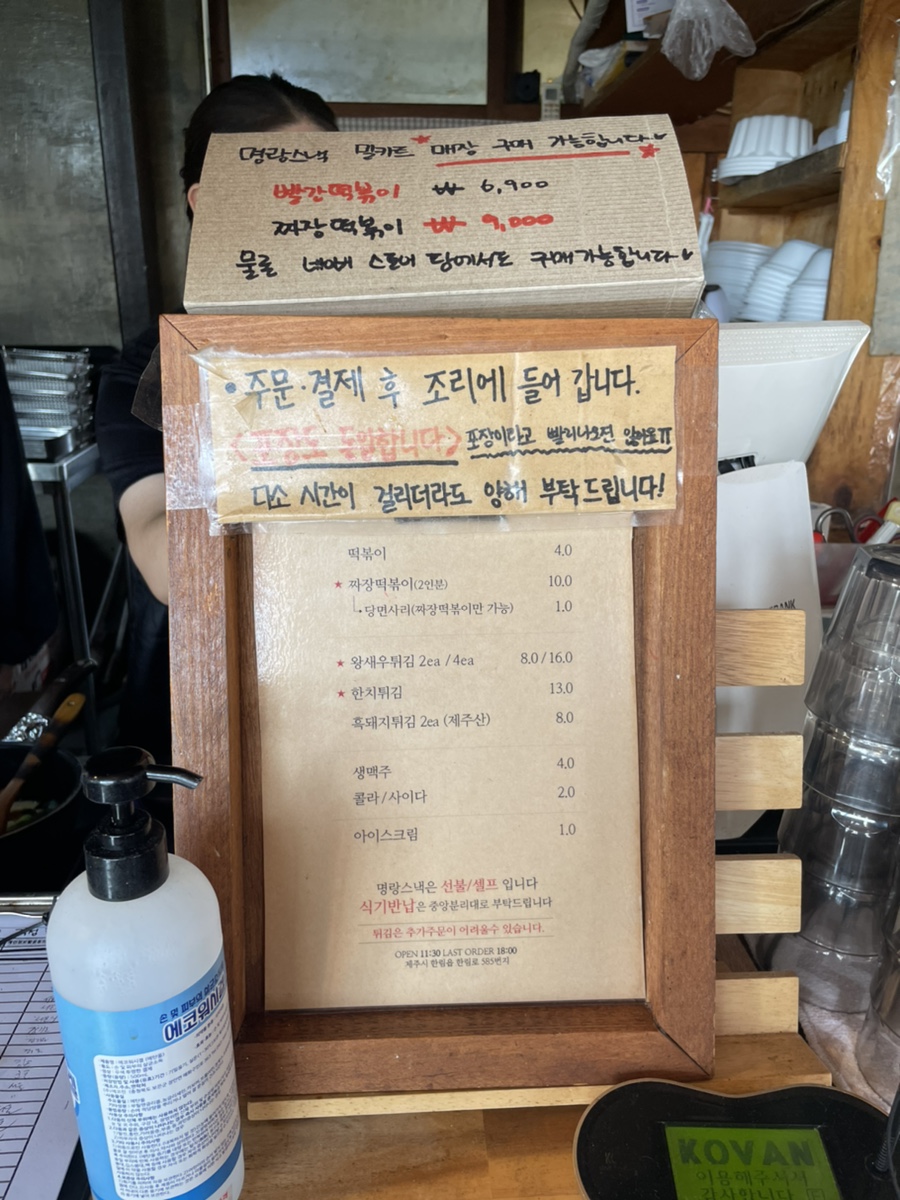 명랑스낵 밀키트 매장 구매 가능합니다
빨간떡볶이 ₩ 6,900
짜장떡볶이 ₩ 9,000
물론 네이버 스토어 팜에서도 구매가능합니다
• 주문·결제 후 조리에 들어 갑니다.
<포장도 동일합니다> 포장이라고 빨리나오진 않아요ㅠ
다소 시간이 걸리더라도 양해 부탁드립니다!
떡볶이 4.0
★ 짜장떡볶이(2인분) 10.0
•당면사리(짜장떡볶이만 가능) 1.0
★ 왕새우튀김 2ea / 4ea 8.0 / 16.0
★ 한치튀김 13.0
흑돼지튀김 2ea (제주산) 8.0
생맥주 4.0
콜라/사이다 2.0
아이스크림 1.0
명랑스낵은 선불/셀프 입니다
식기반납은 중앙분리대로 부탁드립니다
튀김은 추가주문이 어려울수 있습니다.
OPEN 11:30 LAST ORDER 18:00
제주시 한림읍 한림로 585번지
에코워시
KOVAN
이용해주셔서
감사합니다